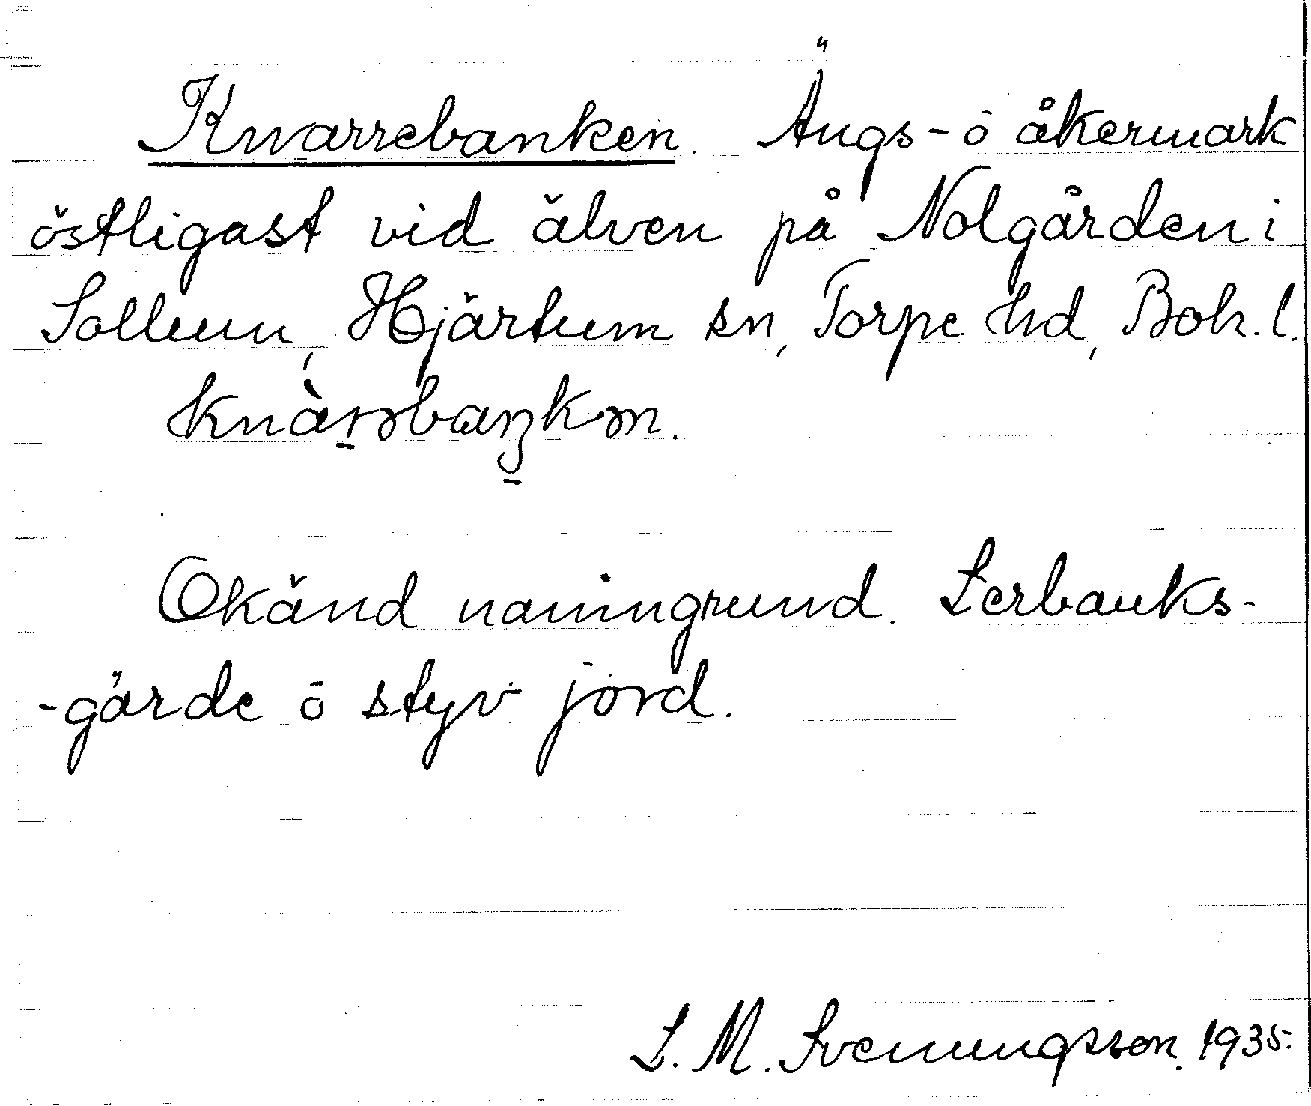 Knarrebanken. Ängs- o åkermark
östligast vid älven på Nolgården i
Sollum, Hjärtum sn, Torpe hd, Boh. l.
Okänd namngrund. Lerbanks-
-gärde o styv jord.
L. M. Svenungsson. 1935.